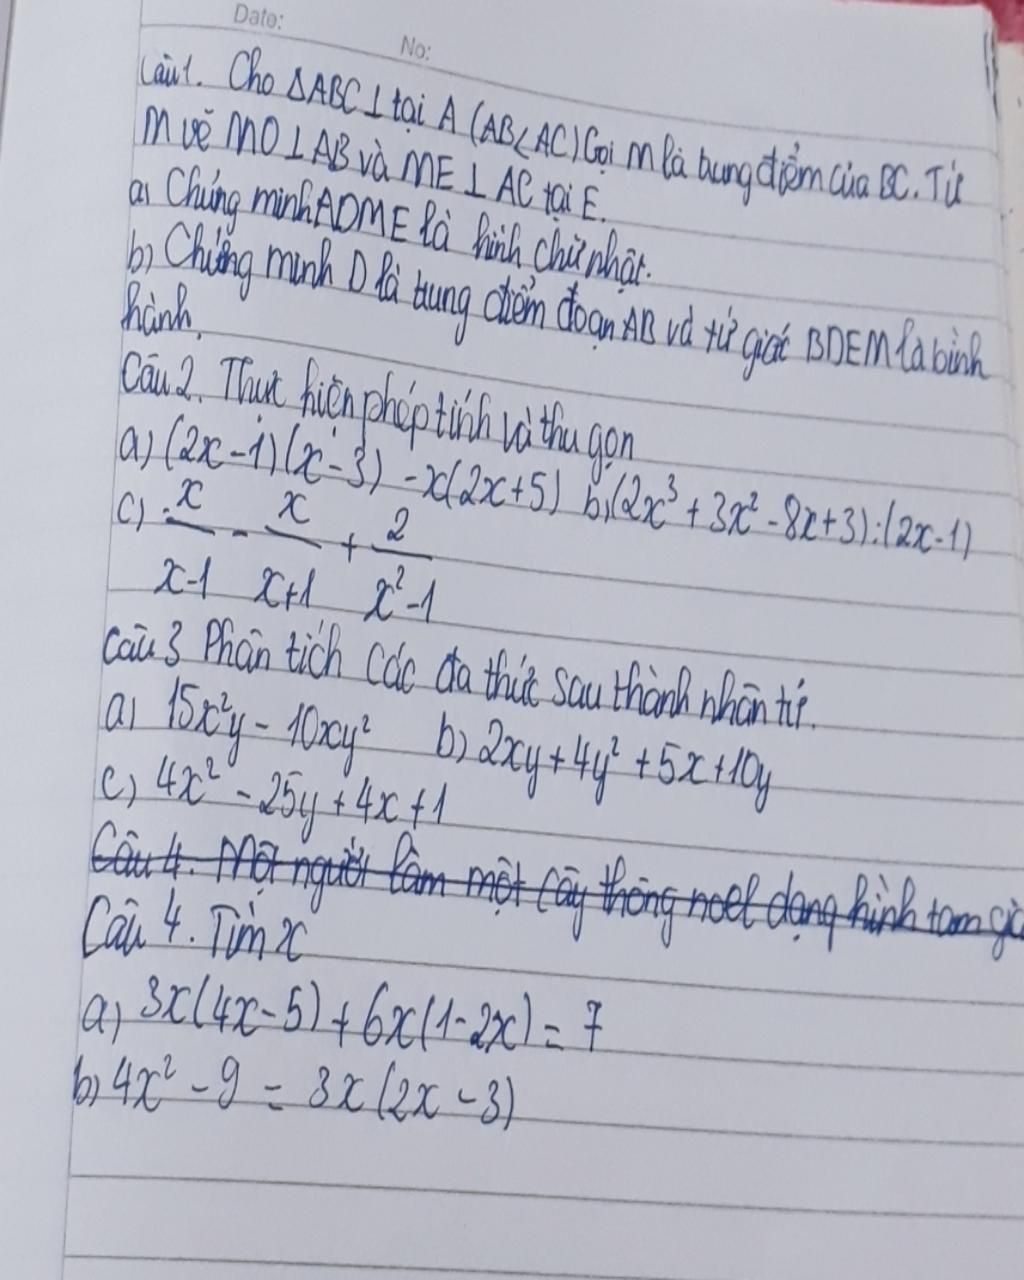 Date:
No:
Câu 1. Cho ΔABC ⊥ tại A (AB<AC) Gọi M là trung điểm của BC. Từ
M vẽ MD ⊥ AB và ME ⊥ AC tại E.
a) Chứng minh ADME là hình chữ nhật.
b) Chứng minh D là trung điểm đoạn AB và tứ giác BDEM là bình
hành.
Câu 2. Thực hiện phép tính và thu gọn
a) (2x-1)(x-3) - x(2x+5) b) (2x³ + 3x² - 8x+3):(2x-1)
c) x/(x-1) - x/(x+1) + 2/(x²-1)
Câu 3 Phân tích các đa thức sau thành nhân tử.
a) 15x²y - 10xy² b) 2xy + 4y² + 5x + 10y
c) 4x² - 25y + 4x + 1
Câu 4. Một người làm một cây thông noel dạng hình tam giá
Câu 4. Tìm x
a) 3x(4x-5) + 6x(1-2x) = 7
b) 4x² - 9 = 3x(2x-3)